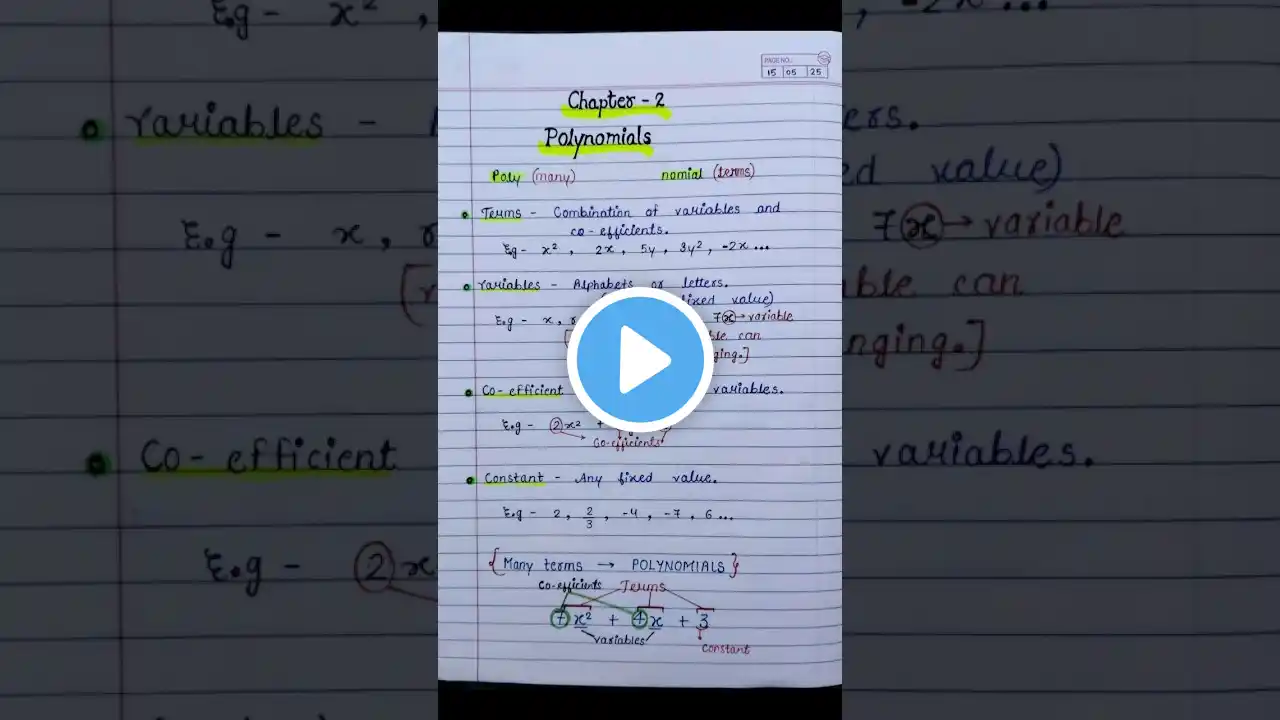 PAGE NO.:
15 05 25
Chapter - 2
Polynomials
Poly (many) nomial (terms)
• Terms - Combination of variables and
co-efficients.
Eg - x², 2x, 5y, 3y², -2x ...
• variables - Alphabets or letters.
fixed value)
E.g - x, 7x → variable
can
]
• Co-efficient variables.
E.g - 2x² +
Co-efficients
• Constant - Any fixed value.
E.g - 2, 2/3, -4, -7, 6 ...
{Many terms → POLYNOMIALS}
Co-efficients Terms
7x² + 4x + 3
variables
Constant
E.g - x², -2x ...
• variables - ers.
ed value)
E.g - x, 7x → variable
ble can
nging.]
• Co-efficient variables.
E.g - 2x